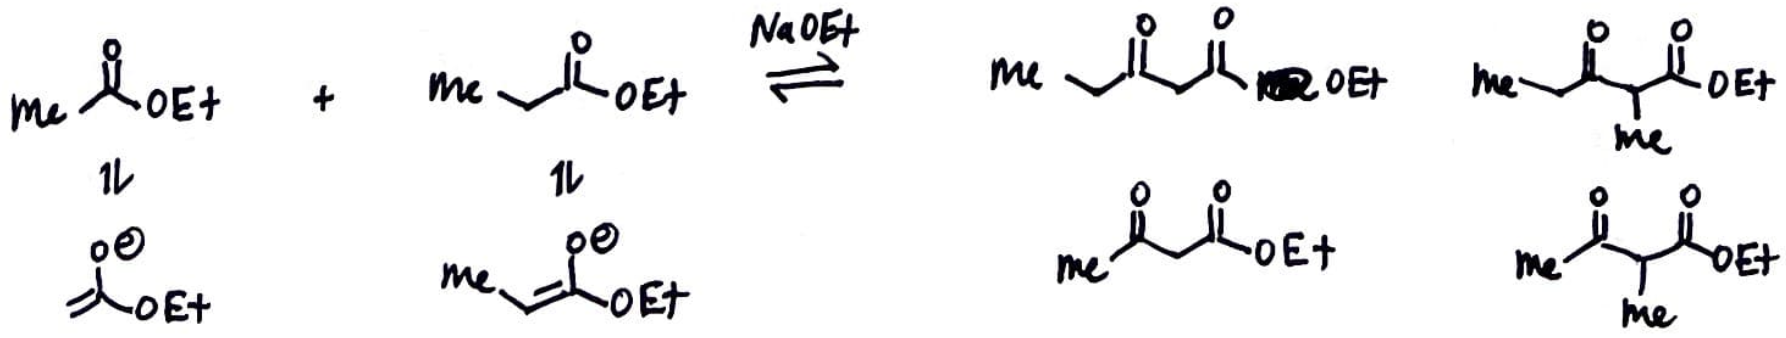 NaOEt
Me O OEt + Me O OEt ⇌ Me O O OEt Me O O OEt Me
⇌ ⇌
O⊖ OEt Me O⊖ OEt Me O O OEt Me O O OEt Me